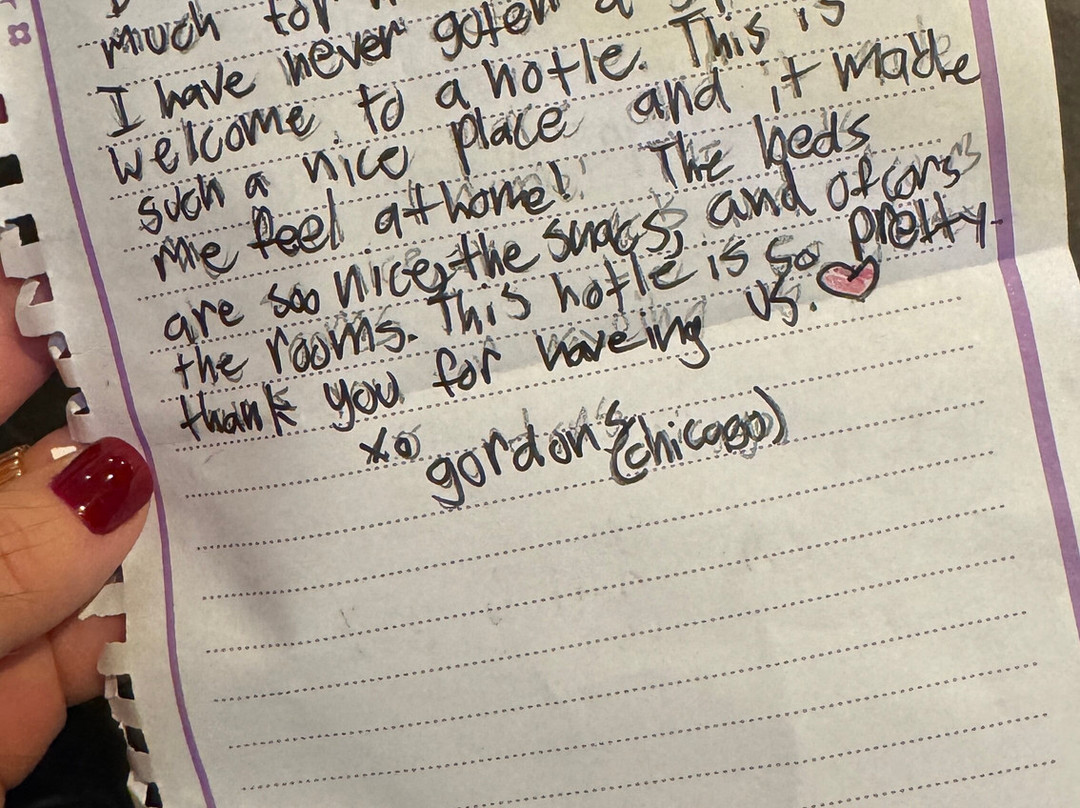 much for
I have never goten a
welcome to a hotle. This is
such a nice place and it made
me feel at home! The beds
are soo nice, the snacs, and ofcors
the rooms. This hotle is so pretty.
thank you for haveing us.
xo gordons (chicago)